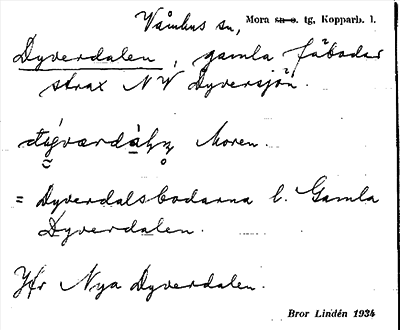 Våmhus sn, Mora sn o. tg, Kopparb. l.
Dyverdalen, gamla fäbodar
strax NV Dyversjön.
Moren.
= Dyverdalsbodarna l. Gamla
Dyverdalen.
Jfr Nya Dyverdalen.
Bror Lindén 1934